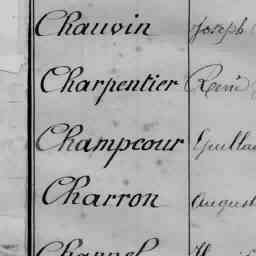 Chauvin Joseph
Charpentier René
Champcour
Charron August